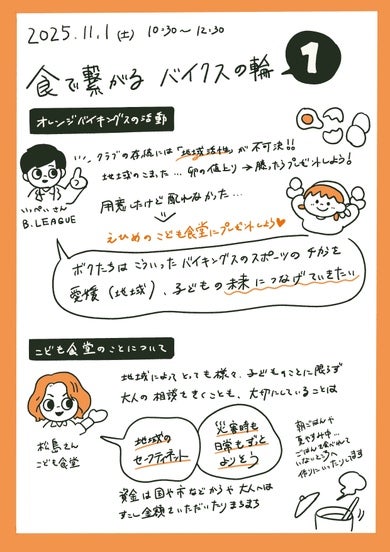 2025.11.1(土) 10:30〜12:30
食で繋がる バイクスの輪
1
オレンジバイキングスの活動
クラブの存続には「地域活性」が不可決!!
地域のこまった…卵の値上り→勝ったらプレゼントしよう!
用意したけど配れなかった…
えひめのこども食堂にプレゼントしよう♥
いっぺいさん
B.LEAGUE
ボクたちは こういった バイキングスのスポーツの チカラを
愛媛(地域)、子どもの未来につなげていきたい
こども食堂のことについて
地域によって とっても様々、子どものことに限らず
大人の相談をきくことも、大切にしていることは
松島さん
こども食堂
地域の
セーフティネット
災害時も
日常もずっと
よりそう
朝ごはんや
夏やすみ中…
ごはん食べれて
いないところへ
作りにいったりします
資金は国や市などからや 大人へは
すこし金額をいただいたりまちまち